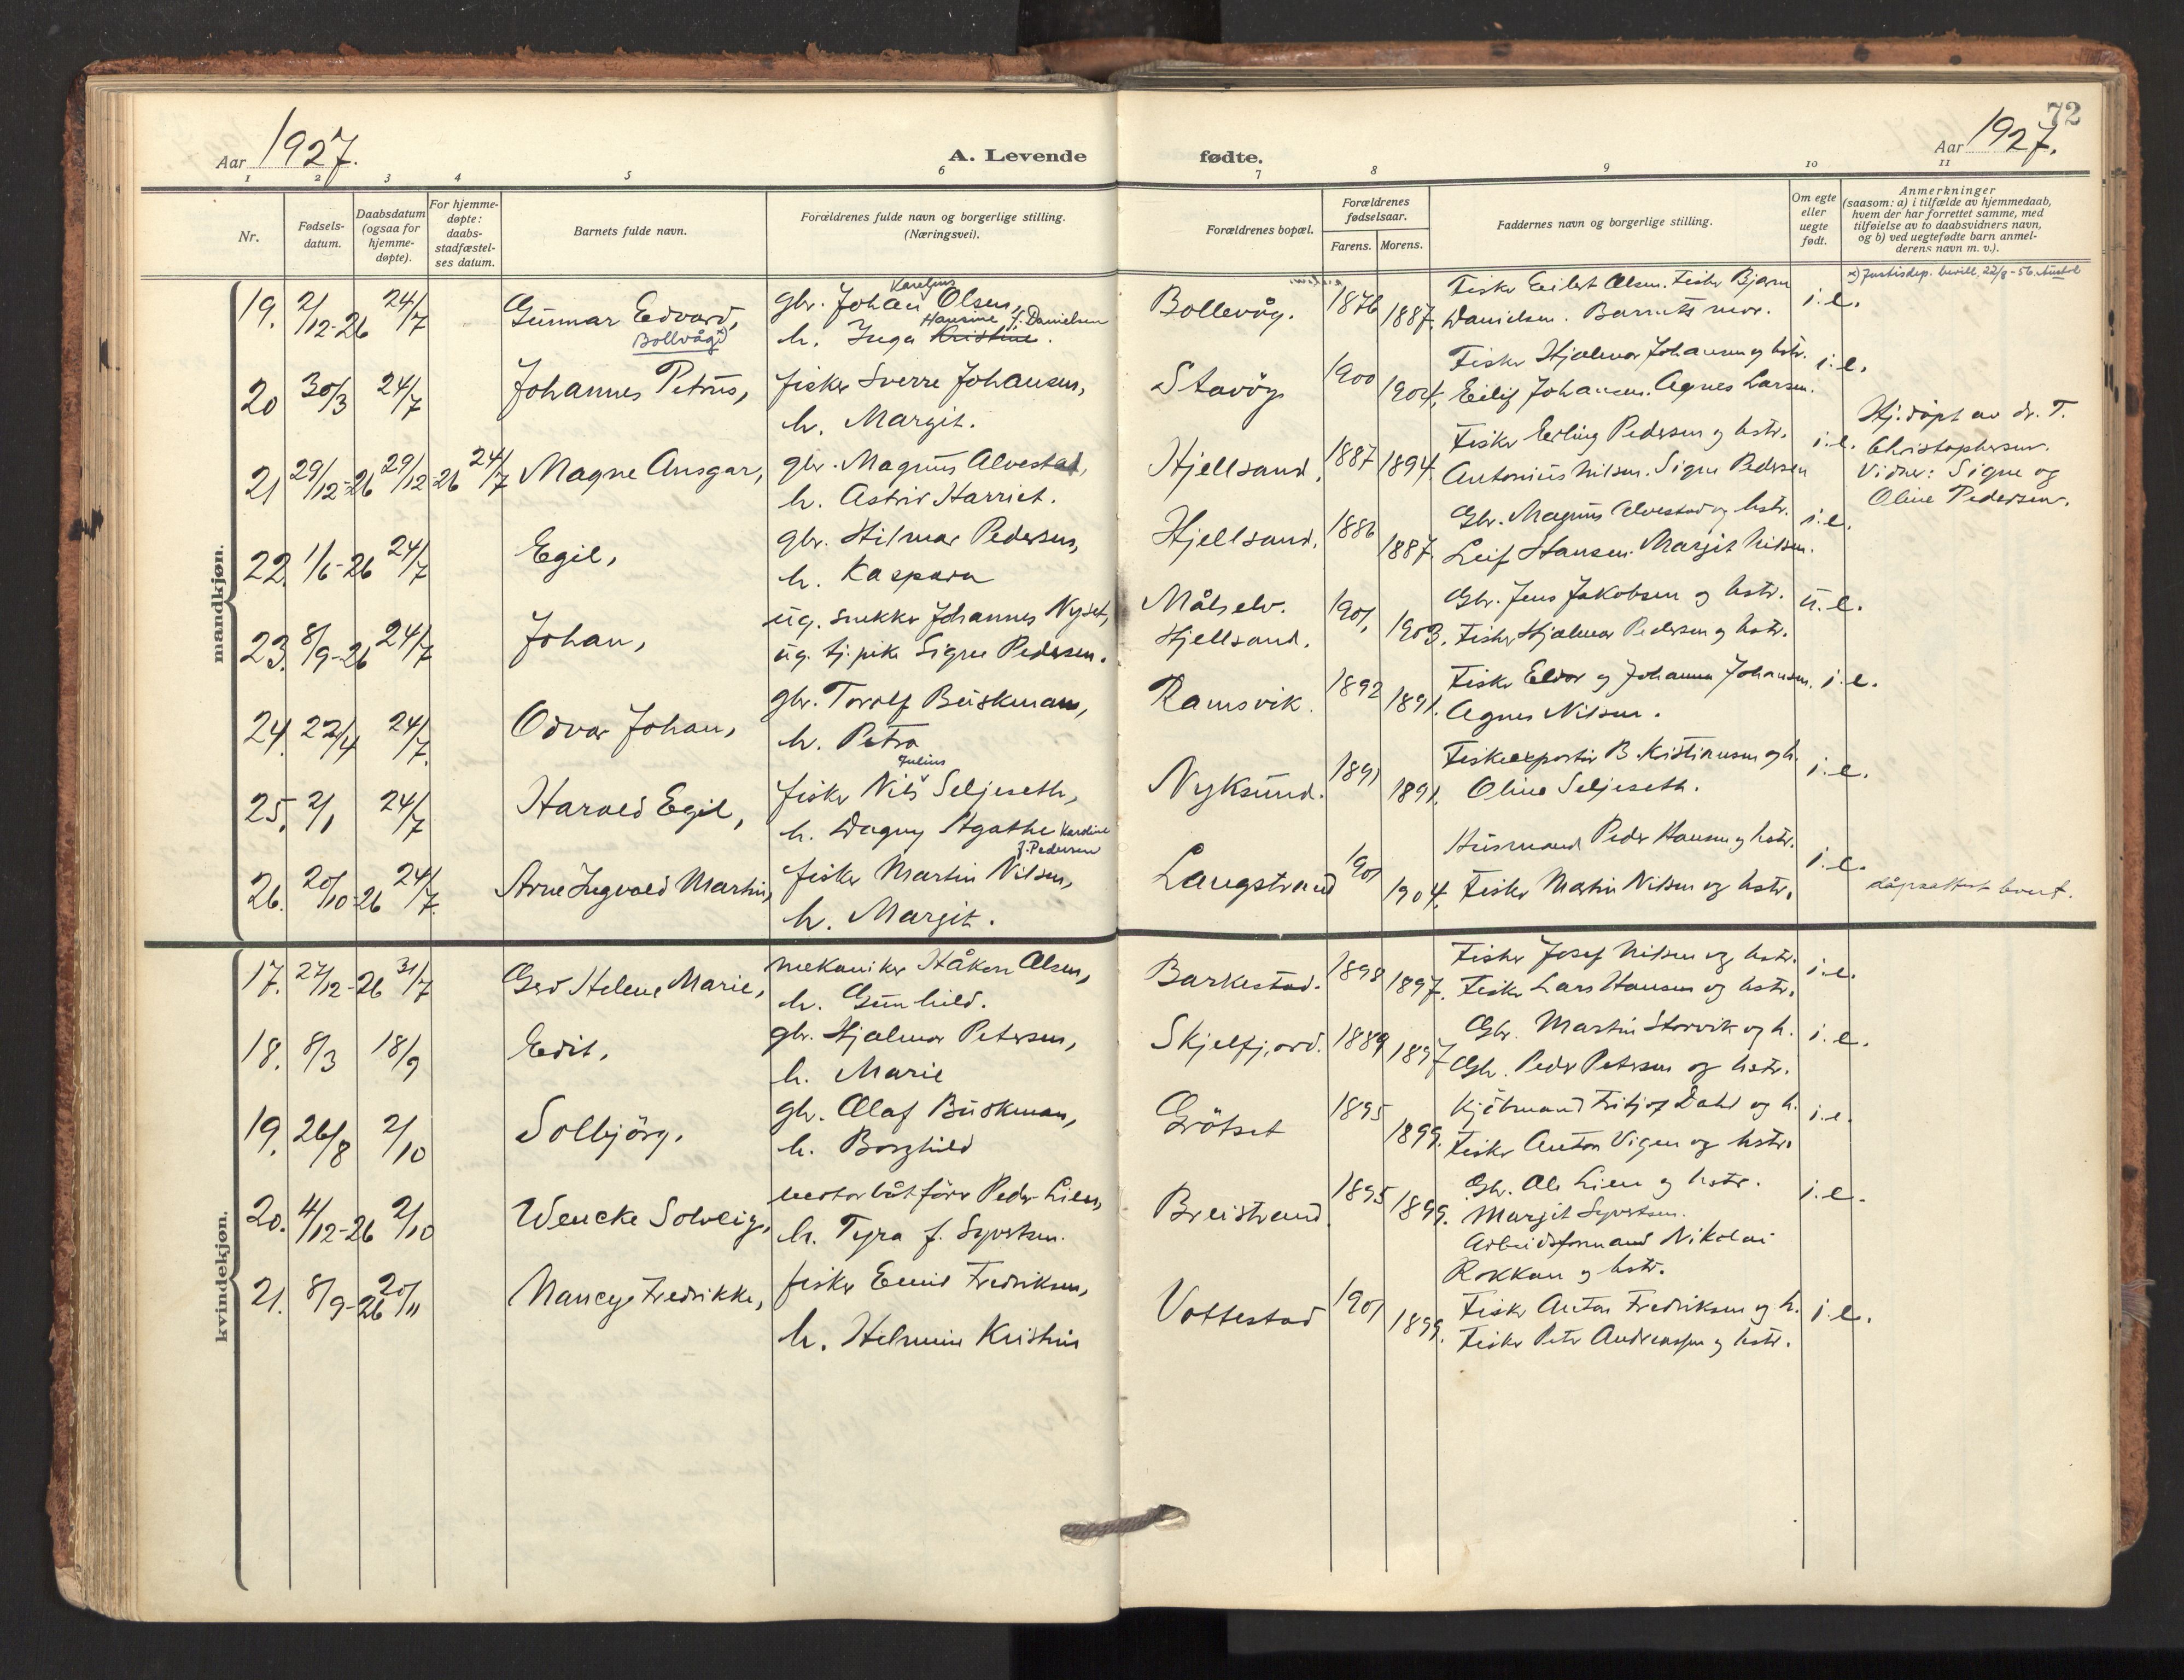 72
Aar 1927. A. Levende fødte. Aar 1927.
1 2 3 4 5 6 7 8 9 10 11
Nr.
Fødsels-
datum.
Daabsdatum
(ogsaa for
hjemme-
døpte).
For hjemme-
døpte:
daabs-
stadfæstel-
ses datum.
Barnets fulde navn.
Forældrenes fulde navn og borgerlige stilling.
(Næringsvei).
Forældrenes bopæl.
Forældrenes
fødselsaar.
Farens. Morens.
Faddernes navn og borgerlige stilling.
Om egte
eller
uegte
født.
Anmerkninger
(saasom: a) i tilfælde av hjemmedaab,
hvem der har forrettet samme, med
tilføielse av to daabsvidners navn,
og b) ved uegtefødte barn anmel-
derens navn m. v.).
mandkjøn.
19. 2/12-26 24/7 Gunnar Edvard, gbr. Johan Olsen, Bollevåg. 1876 1887. Fisker Eilert Olsen. Fisker Bjarne i.e. x) Justisdep. bevill. 22/8-56
Bollvåg x) h. Inga Kristine. Hansine f. Danielsen Danielsen. Barnets mor.
20 30/3 24/7 Johannes Petrus, fisker Sverre Johansen, Stavög 1900 1904. Fisker Hjalmar Johansen og hstr. i.e.
h. Margit. Eilif Johansen. Agnes Larsen.
21 29/12-26 29/12-26 24/7 Magne Ansgar, gbr. Magnus Alvestad, Hjellsand. 1887 1894. Fisker Erling Pedersen og hstr. i.e. Hj.døpt av dr. T.
h. Astrid Harriet. Antonius Nilsen. Signe Pedersen Christophersen.
Vidner: Signe og
Oline Pedersen.
22. 1/6-26 24/7 Egil, gbr. Hilmar Pedersen, Hjellsand. 1886 1887. Gbr. Magnus Alvestad og hstr. i.e.
h. Kaspara Leif Hansen. Margit Nilsen.
23. 8/9-26 24/7 Johan, ug. snekker Johannes Nyset, Målselv. 1901, 1903. Gbr. Jens Jakobsen og hstr. u.e.
ug. tj.pike Signe Pedersen. Hjellsand. Fisker Hjalmar Pedersen og hstr.
24. 22/4 24/7. Odvar Johan, gbr. Torolf Buskmann, Ramsvik. 1892 1891. Fisker Eldor og Johanna Johansen. i.e.
h. Petra Agnes Nilsen.
25. 2/1 24/7 Harald Egil, fisker Nils Julius Seljeseth, Nyksund. 1891 1891. Fiskeexportör B. Kristiansen og h. i.e.
h. Dagny Agathe Karoline Oline Seljeseth.
f. Pedersen
26. 20/10-26 24/7. Arne Ingvald Martin, fisker Martin Nilsen, Langstrand 1901 1904. Husmand Peder Hansen og hstr. i.e.
h. Margit. Fisker Martin Nilsen og hstr. dåpsattest
kvindekjøn.
17. 27/12-26 31/7 Gerd Helene Marie, mekaniker Håkon Olsen, Barkestad. 1898 1897. Fisker Josef Nilsen og hstr. i.e.
h. Gunhild. Fisker Lars Hansen og hstr.
18. 8/3 18/9 Edit, gbr. Hjalmar Petersen, Skjelfjord. 1889 1897 Gbr. Martin Storvik og h. i.e.
h. Marie Gbr. Peder Petersen og hstr.
19. 26/8 2/10 Solbjörg. gbr. Olaf Buskmann, Grötset 1895 1899. Kjöbmand Fritjof Dahl og h. i.e.
h. Borghild Fisker Anton Vigen og hstr.
20. 4/12-26 2/10 Wencke Solveig, motorbåtförer Peder Lien, Breistrand. 1895 1899. Gbr. Ole Lien og hstr. i.e.
h. Tyra f. Syvertsen. Margit Syvertsen.
Arbeidsformand Nikolai
Rokkan og hstr.
21. 8/9-26 20/11 Nancy Fredrikke, fisker Emil Fredriksen, Vottestad 1901 1899. Fisker Anton Fredriksen og h. i.e.
h. Helmine Kristine Fisker Peter Andreassen og hstr.